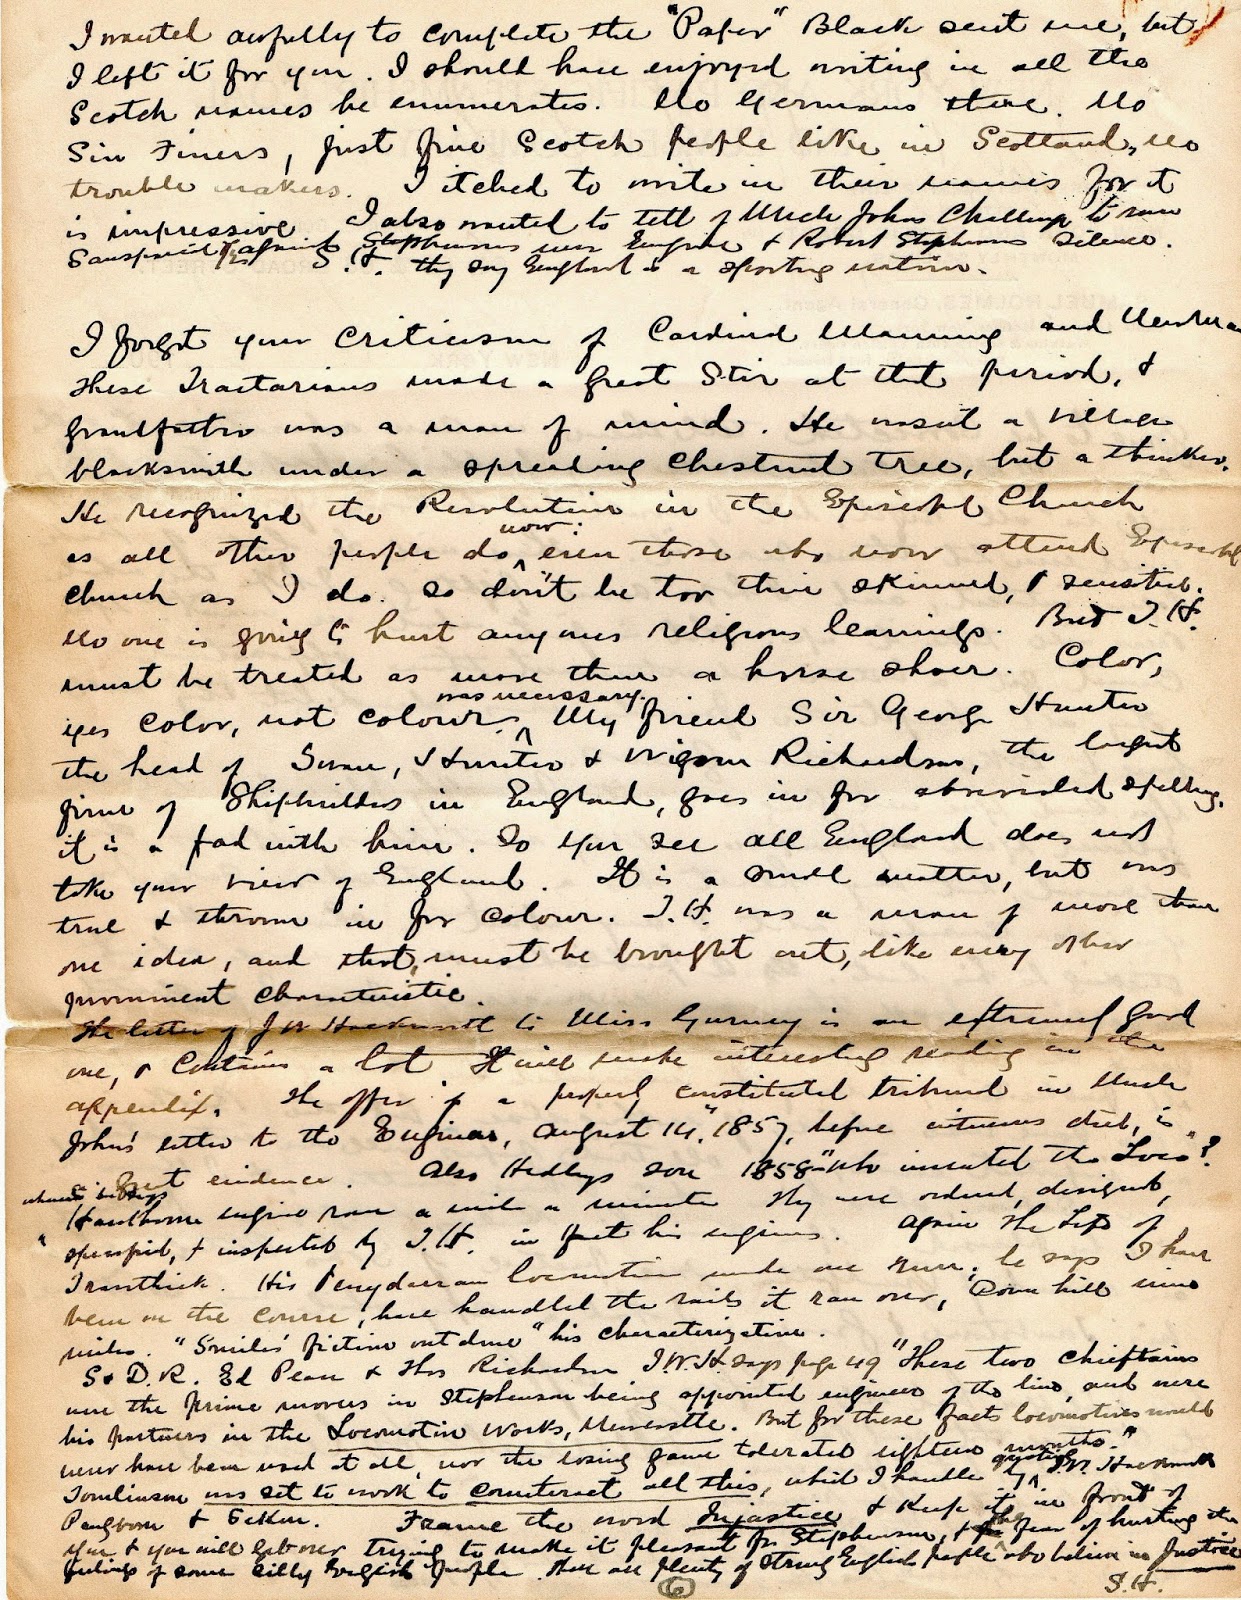 I wanted awfully to complete the "Paper" Black sent me, but
I left it for you. I should have enjoyed writing in all the
Scotch names he enumerates. No Germans there. No
Sin Finers, just fine Scotch people like in Scotland, no
trouble makers. I itched to write in their names for it
is impressive. I also wanted to tell of Uncle Johns Challenge to run
Sanspareil against Stephensons new Engine & Robert Stephensons silence.
S.H. they say England is a sporting nation.
I forgot your criticism of Cardinal Manning and Newman
These Tractarians made a great Stir at that period, &
grandfather was a man of mind. He wasnt a village
blacksmith under a spreading chestnut tree, but a thinker.
He recognized the Revolution in the Episcopal Church
now.
as all other people do, even those who now attend Episcopal
church as I do. So don't be too thin skinned, & sensitive.
No one is going to hurt anyones religious leanings. But T.H.
must be treated as more than a horse shoer. Color,
was necessary.
yes color, not colour, My friend Sir George Hunter
the head of Swan, Hunter & Wigam Richardson, the largest
firm of Shipbuilders in England, goes in for abreviated spelling.
it is a fad with him. So you see all England does not
take your view of England. It is a small matter, but was
true & thrown in for colour. T.H. was a man of more than
one idea, and that, must be brought out, like every other
prominent characteristic.
The letter of J W Hackworth to Miss Gurney is an extremely good
one, & contains a lot It will make interesting reading in the
appendix. The offer of a properly constituted tribunal in Uncle
John's letter to the Engineer, August 14", 1857, before witnesses died, is
great evidence. Also Hedleys son 1858 "Who invented the Loco"?
Hawthorne engine ran a mile a minute They were ordered, designed,
specified, & inspected by T.H. in fact his engines. Again the Life of
Travithick. His Penydarran locomotive made one run, he says I have
been on the course, have handled the rails it ran over, Down hill nine
miles. "Smiles' fiction outdone" his characterization.
S & D.R. Ed Pease & Thos Richardson J.W.H. says page 49 "These two chieftains
were the prime movers in Stephenson being appointed engineer of the line, and were
his partners in the Locomotive Works, Newcastle. But for these facts locomotives would
never have been used at all, nor the losing game tolerated eighteen months."
Tomlinson was set to work to counteract all this, which I handle by J.W. Hackworth
Pangborn & Frame the word Injustice & keep it in front of
you & you will get over trying to make it pleasant for Stephenson, & the fear of hurting the
feelings of some silly English people. There are plenty of strong English people who believe in Justice
S.H.
6